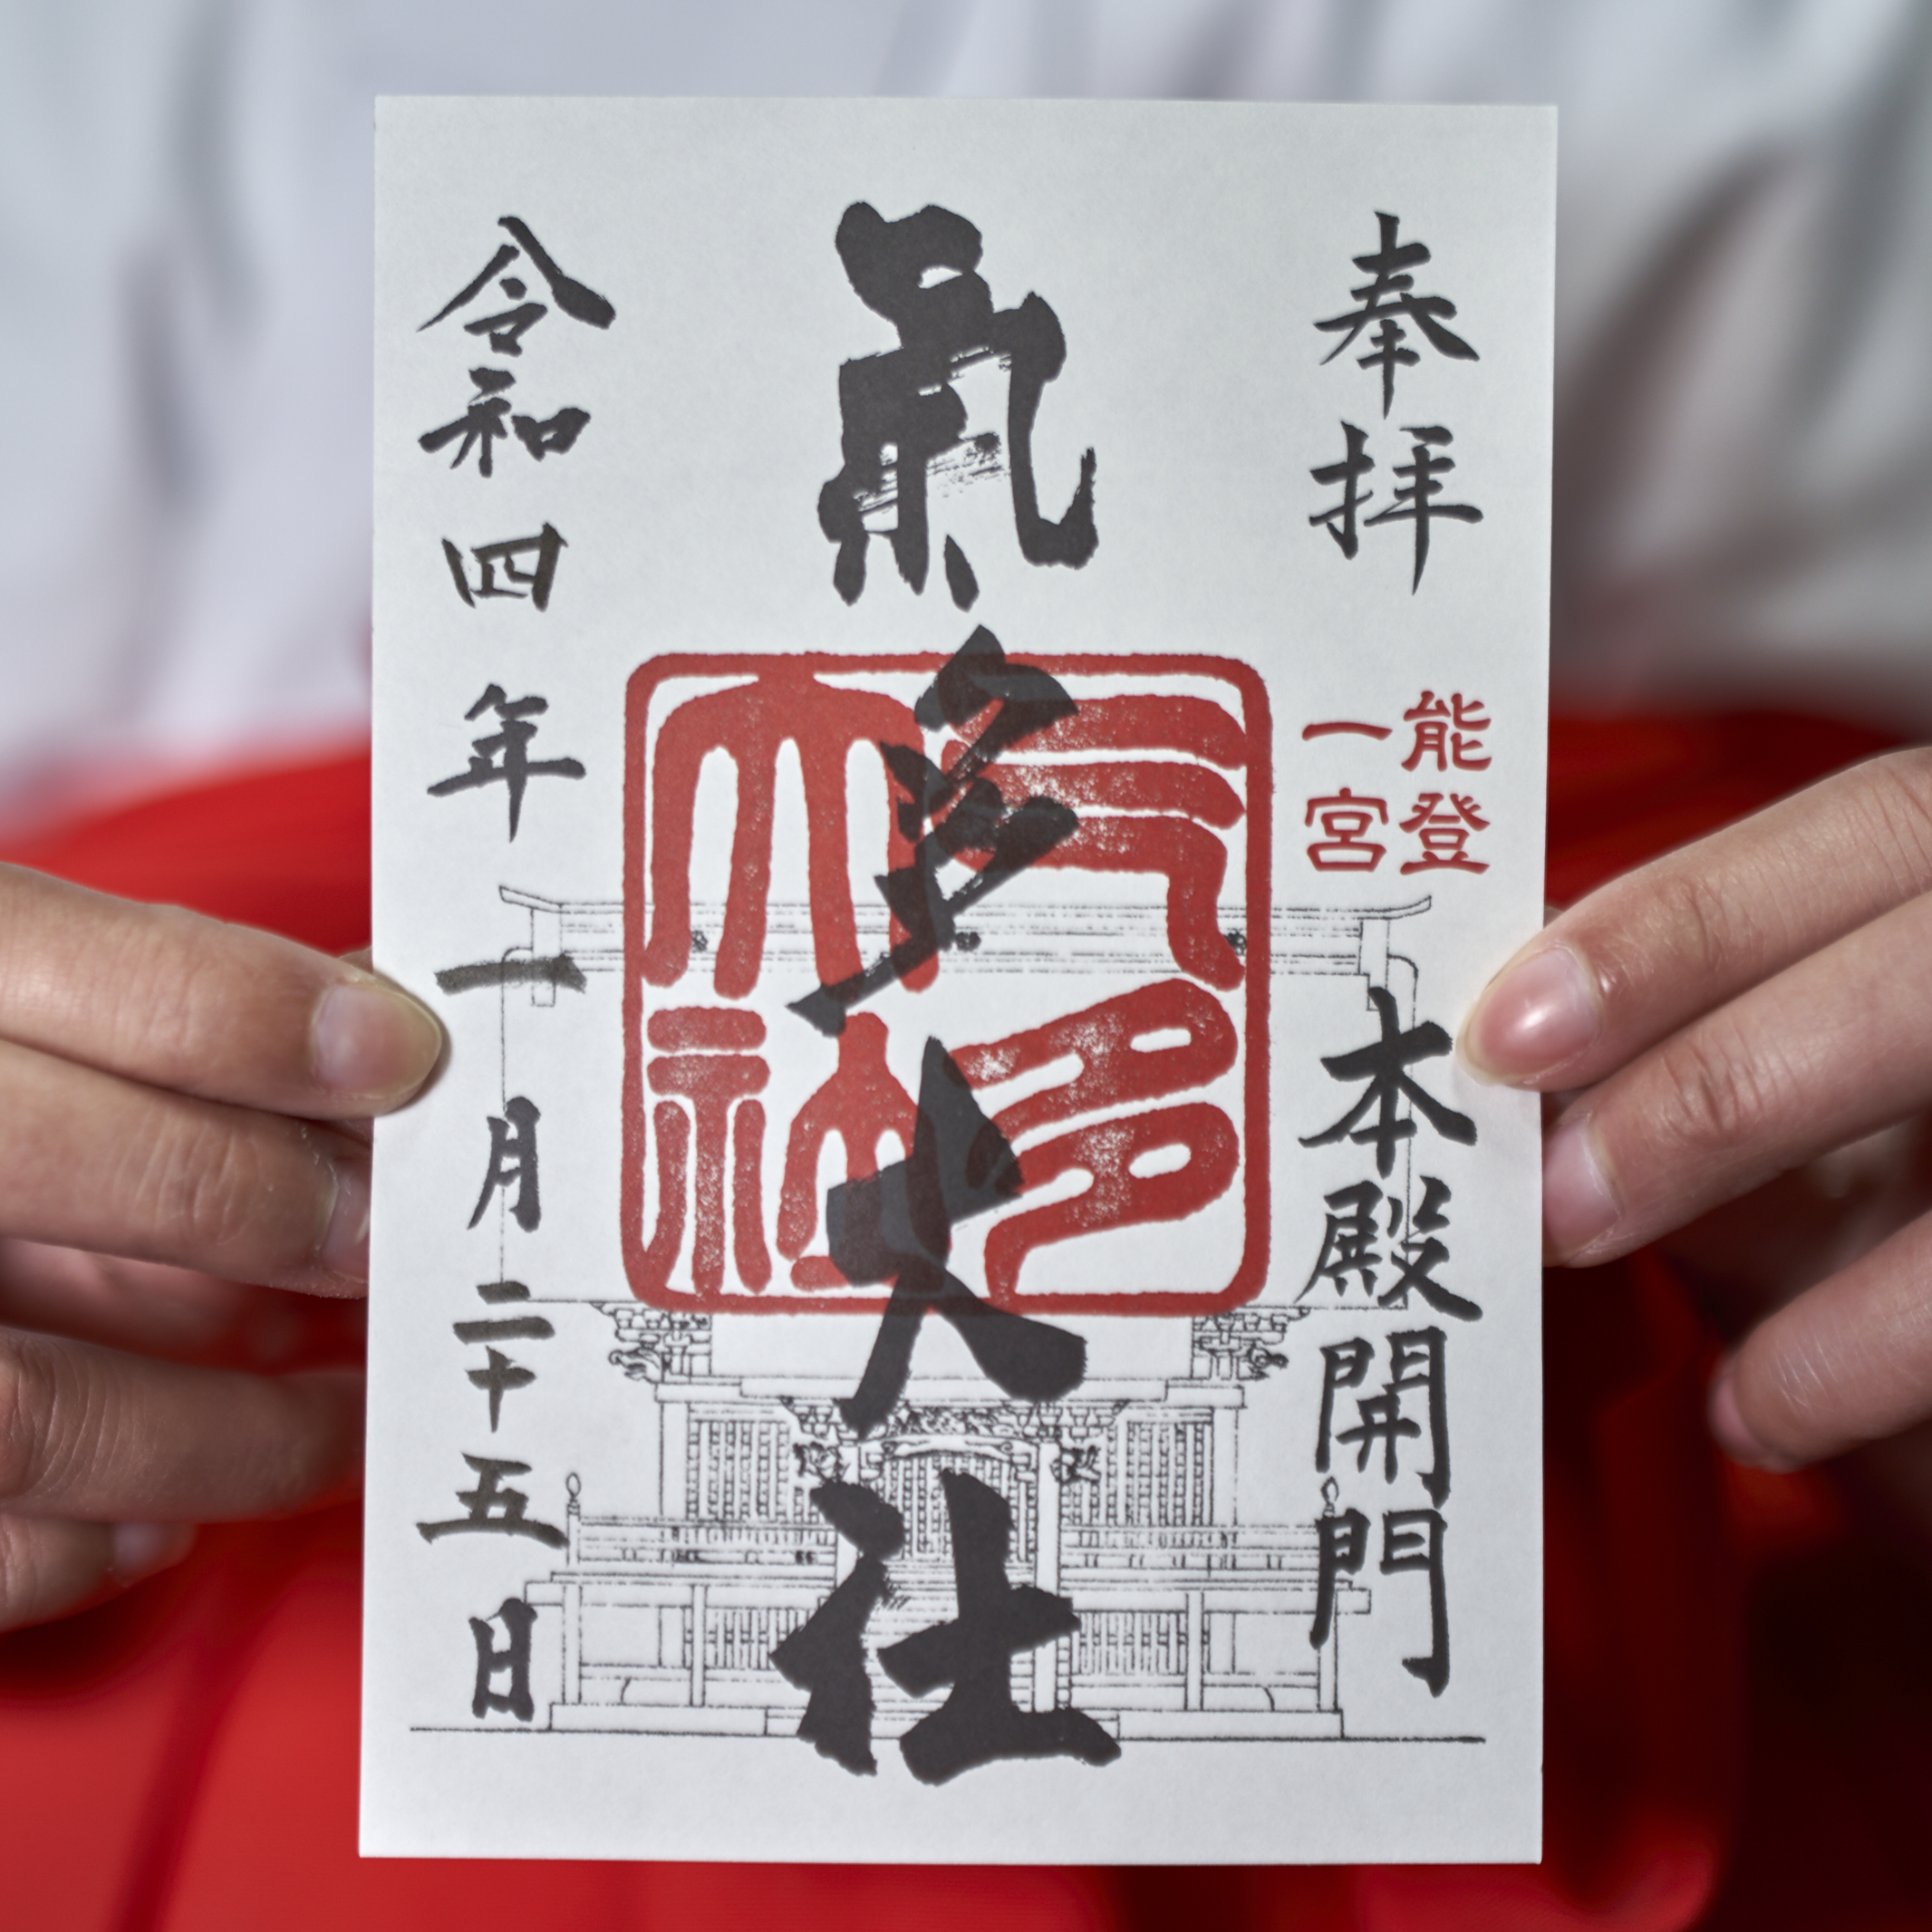 奉拝
能登
一宮
本殿開門
氣多大社
气多
大社
令和四年一月二十五日